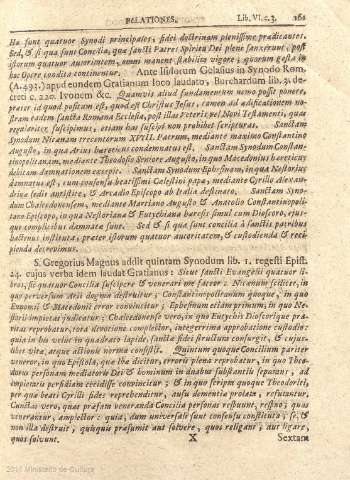 RELATIONES. Lib. VI. c. 3. 161
Hæ sunt quatuor Synodi principales, fidei doctrinam plenissime prædicantes.
Sed, & si qua sunt Concilia, quæ sancti Patres Spiritu Dei pleni sanxerunt, post
istorum quatuor autoritatem, omni manent stabilita vigore, quorum gesta in
hoc Opere condita continentur. Ante Isidorum Gelasius in Synodo Rom.
(A. 493.) apud eundem Gratianum loco laudato, Burchardum lib. 3. de-
creti c. 220. Ivonem &c. Quamvis aliud fundamentum nemo possit ponere,
præter id quod positum est, quod est Christus Jesus, tamen ad ædificationem no-
stram eadem sancta Romana Ecclesia, post illas Veteris vel Novi Testamenti, quas
regulariter suscipimus, etiam has suscipi non prohibet scripturas. Sanctam
Synodum Nicænam trecentorum XVIII. Patrum, mediante maximo Constantino
Augusto, in qua Arius hæreticus condemnatus est. Sanctam Synodum Constan-
tinopolitanam, mediante Theodosio Seniore Augusto, in quo Macedonius hæreticus
debitam damnationem excepit. Sanctam Synodum Ephesinam, in qua Nestorius
damnatus est, cum consensu beatissimi Cœlestini papæ, mediante Cyrillo Alexan-
drinæ sedis antistite, & Arcadio Episcopo ab Italia destinato. Sanctam Syno-
dum Chalcedonensem, mediante Martiano Augusto & Anatolio Constantinopoli-
tano Episcopo, in qua Nestoriana & Eutychiana hæresis simul cum Dioscoro, ejus-
que complicibus damnatæ sunt. Sed & si qua sunt concilia à sanctis patribus
hactenus instituta, præter istorum quatuor autoritatem, & custodienda & reci-
pienda decrevimus.
S. Gregorius Magnus addit quintam Synodum lib. 1. regesti Epist.
24. cujus verba idem laudat Gratianus: Sicut sancti Evangelii quatuor li-
bros, sic quatuor Concilia suscipere & venerari me fateor. Nicænum scilicet, in
quo perversum Arii dogma destruitur; Constantinopolitanum quoque, in quo
Eunomii & Macedonii error convincitur; Ephesinum etiam primum, in quo Ne-
storii impietas judicatur; Chalcedonense vero, in quo Eutychis Dioscorique pra-
vitas reprobatur, tota devotione complector, integerrima approbatione custodio:
quia in his velut in quadrato lapide, sanctæ fidei structura consurgit, & cujus-
libet vitæ, atque actionis norma consistit. Quintum quoque Concilium pariter
veneror, in quo Epistola, quæ Ibæ dicitur, erroris plena reprobatur, in quo Theo-
dorus personam mediatoris Dei & hominum in duabus substantiis separans, ad
impietatis perfidiam cecidisse convincitur; & in quo scripta quoque Theodoriti,
per quæ beati Cyrilli fides reprehenditur, ausu dementiæ prolata, refutantur.
Cunctas vero, quas præfata veneranda Concilia personas respuunt, respuo; quas
venerantur, amplector: quia, dum universali sunt consensu constituta; se, &
non illa destruit, quisquis præsumit aut solvere, quos religant; aut ligare,
quos solvunt. X Sextam
2011 Ministerio de Cultura